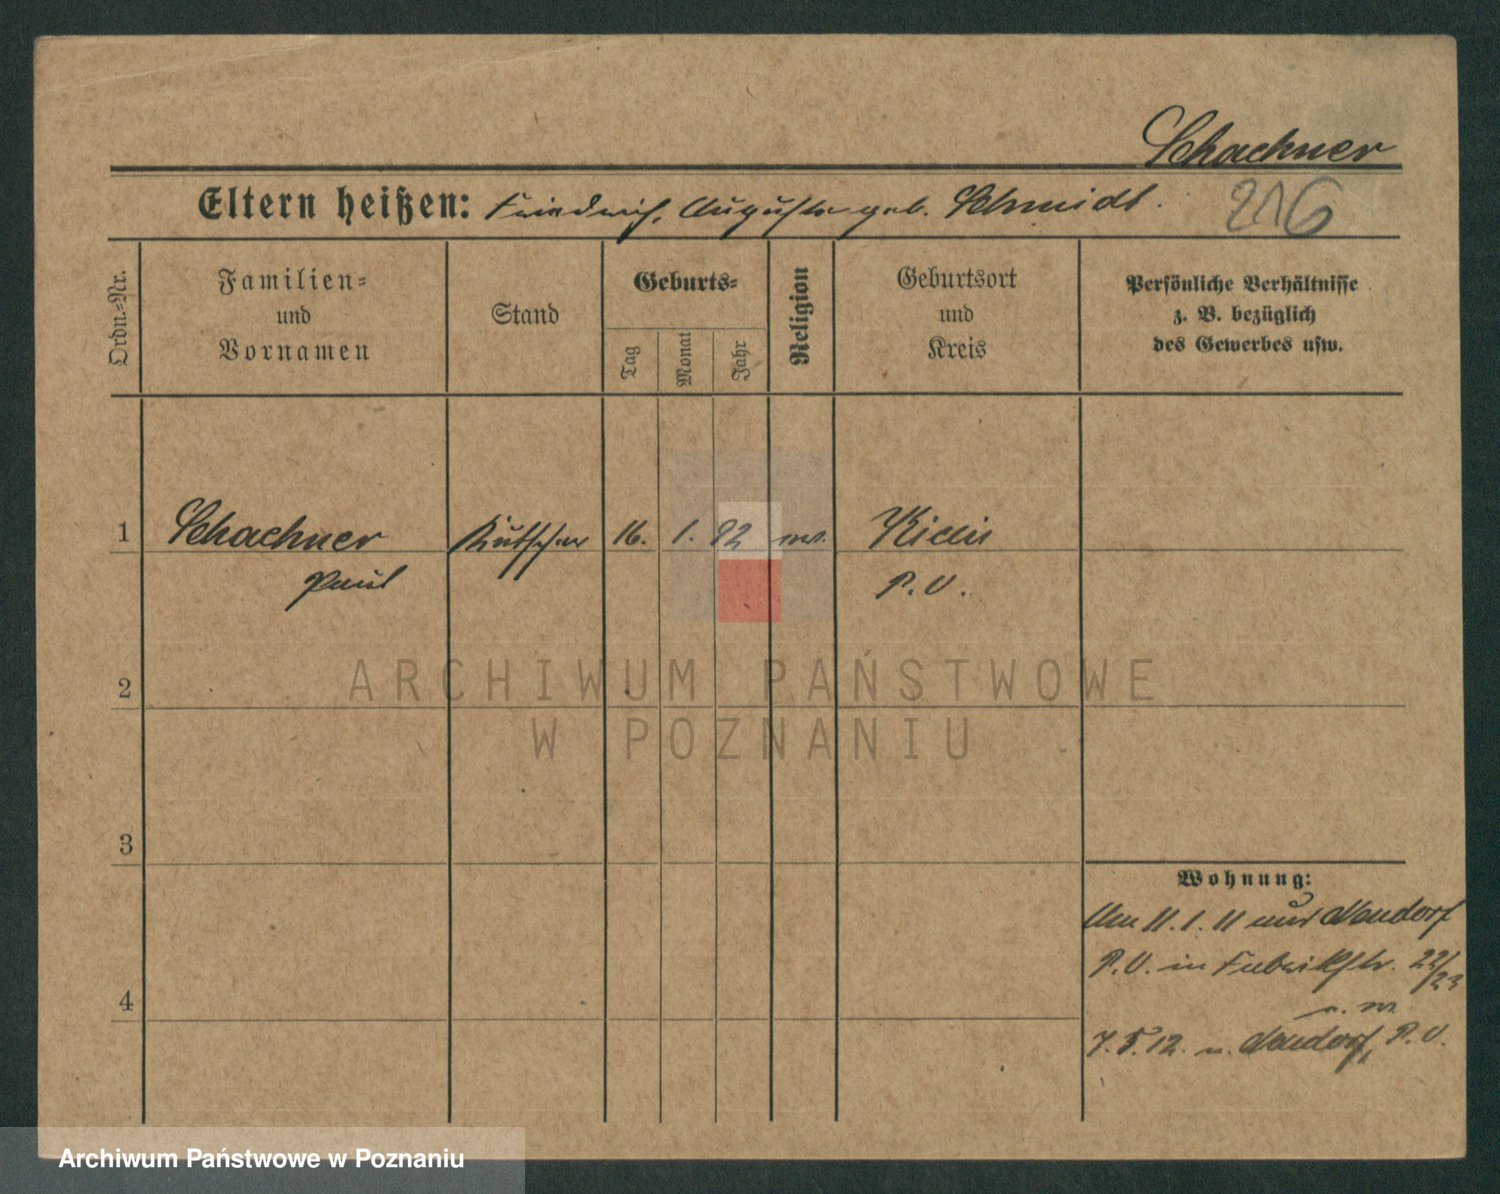 Schachner
Eltern heißen: Friedrich, Auguste geb. Schmidt.
216
Ordn.-Nr.
Familien-
und
Vornamen
Stand
Geburts-
Tag
Monat
Jahr
Religion
Geburtsort
und
Kreis
Persönliche Verhältnisse
z. B. bezüglich
des Gewerbes usw.
1
Schachner
Paul
Kutscher
16.
1.
92
ev.
Kicin
P. O.
2
ARCHIWUM PAŃSTWOWE
W POZNANIU
3
Wohnung:
Am 11. 1. 11 aus
P. O. in Fabrikstr. 22/23
4
7. 5. 12. n. P. O.
Archiwum Państwowe w Poznaniu